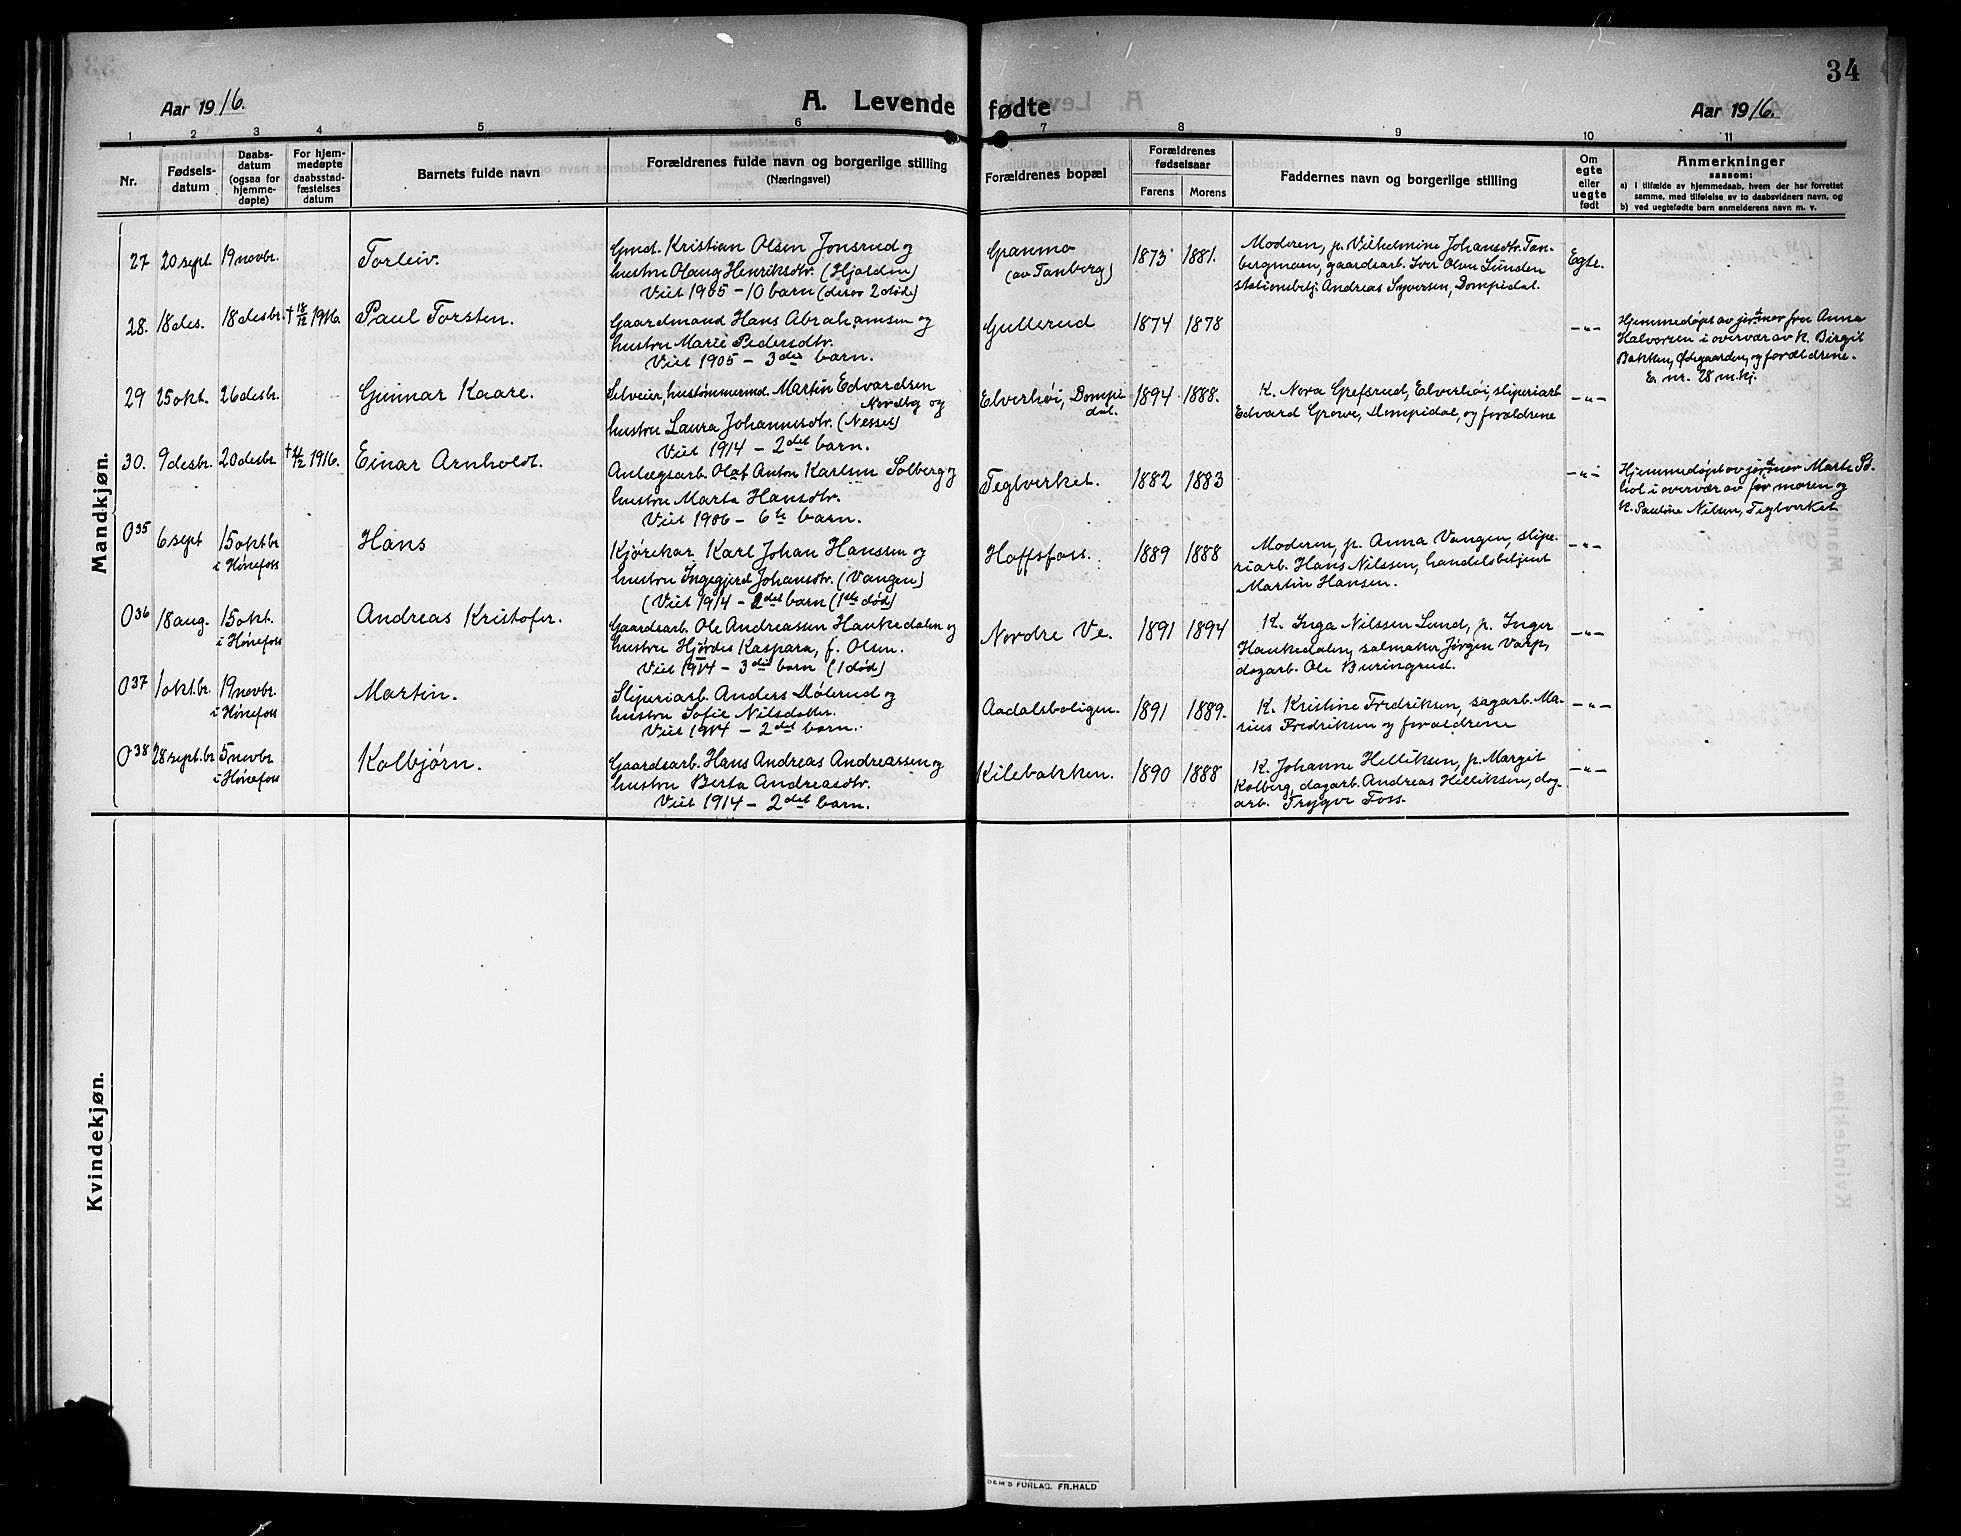 34
Aar 1916.
A. Levende fødte
Aar 1916.
1 2 3 4 5 6 7 8 9 10 11
Nr.
Fødsels-
datum
Daabs-
datum
(ogsaa for
hjemme-
døpte)
For hjem-
medøpte
daabsstad-
fæstelses
datum
Barnets fulde navn
Forældrenes fulde navn og borgerlige stilling
(Næringsvei)
Forældrenes bopæl
Forældrenes
fødselsaar
Farens
Morens
Faddernes navn og borgerlige stilling
Om
egte
eller
uegte
født
Anmerkninger
saasom:
a) i tilfælde av hjemmedaab, hvem der har forrettet
samme, med tilføielse av to daabsvidners navn, og
b) ved uegtefødte barn anmelderens navn m. v.
Mandkjøn.
27 20 sept. 19 novbr. Torleiv.
Gmd. Kristian Olsen Jonsrud og
hustru Olaug Henriksdtr. (Hjorden)
Viet 1905 - 10 barn (derav 2 døde)
Granmo
(av Tanberg)
1873 1881.
Moderen, p. Vilhelmine Johansdtr. Tan-
bergmoen, gaardsarb. Iver Olsen Lunden
stationsbetj. Andreas Syversen, Dompidal.
Egte.
28. 18 des. 18 desbr. † 18/12 1916. Paul Torsten.
Gaardmand Hans Abrahamsen og
hustru Marie Pedersdtr.
Viet 1905 - 3die barn.
Gullerud
1874 1878
-"-
Hjemmedøpt av jordmor fru Anna
Halvorsen i overvær av k. Birgit
Bakken, Ødegaarden, og forældrene.
E nr. 28 m.kj.
29 25 okt. 26 desbr. Gunnar Kaare.
Selveier, hustømmermd. Martin Edvardsen
Nordby og
hustru Laura Johannesdtr. (Nesset)
Viet 1914 - 2det barn.
Elverhøi, Dompi-
dal.
1894 1888.
K. Nora Grefsrud, Elverhøi, sliperiarb.
Edvard Growe, Dompidal, og forældrene
-"-
30. 9 desbr. 20 desbr. 1916. Einar Arnholdt.
Anlægsarb. Olaf Anton Karlsen Solberg og
hustru Marta Hansdtr.
Viet 1906 - 6te barn.
Teglverket.
1882 1883
-"-
Hjemmedøpt av jordmor Marte
i overvær av moren og
K. Pauline Nilsen, Teglverket
O35 6 sept 15 oktbr
i Hønefoss
Hans
Kjørekar Karl Johan Hanssen og
hustru Ingegjerd Johansdtr. (Vangen)
(Viet 1914 - 2det barn (1ste død)
Hoffsfoss.
1889 1888
Moderen, p. Anna Vangen, slipe-
riarb. Hans Nilssen, handelsbetjent
Martin Hansen.
-"-
O36 18 aug. 15 okt.
i Hønefoss
Andreas Kristofer.
Gaardsarb. Ole Andreassen Haukedalen og
hustru Hjørdes Kaspara, f. Olsen.
Viet 1914 - 3die barn (1 død)
Nordre Ve.
1891 1894
K. Inga Nilssen Lund, p. Inger
Haukedalen, salmaker Jørgen Varp,
dagarb. Ole Buringrud.
-"-
O37 1 oktbr. 19 novbr.
i Hønefoss
Martin.
Sliperiarb. Anders Dølerud og
hustru Sofie Nilsdatter.
Viet 1914 - 2det barn.
Aadalsboligen.
1891 1889.
K. Kristine Fredriksen, sagarb. Ma-
rius Fredriksen og forældrene
-"-
O38 28 sept.br 5 novbr
i Hønefoss
Kolbjørn.
Gaardsarb. Hans Andreas Andreassen og
hustru Berta Andreasdtr.
Viet 1914 - 2det barn.
Kilebakken.
1890 1888
K. Johanne Helliksen, p. Margit
Kolberg, dagarb. Andreas Helliksen, dag-
arb. Trygve Foss.
-"-
Kvindekjøn.
FORLAG. FR. HALD